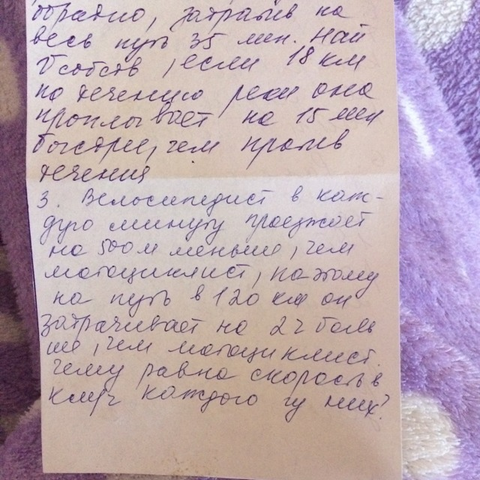 обратно, затратив на
весь путь 35 мин. Най
Vсобств, если 18 км
по течению реки она
проплывает на 15 мин
быстрее, чем против
течения
3. Велосипедист в каж-
дую минуту проезжает
на 500 м меньше, чем
мотоциклист, поэтому
на путь в 120 км он
затрачивает на 2 ч боль
ше, чем мотоциклист.
Чему равна скорость в
км/ч каждого из них?